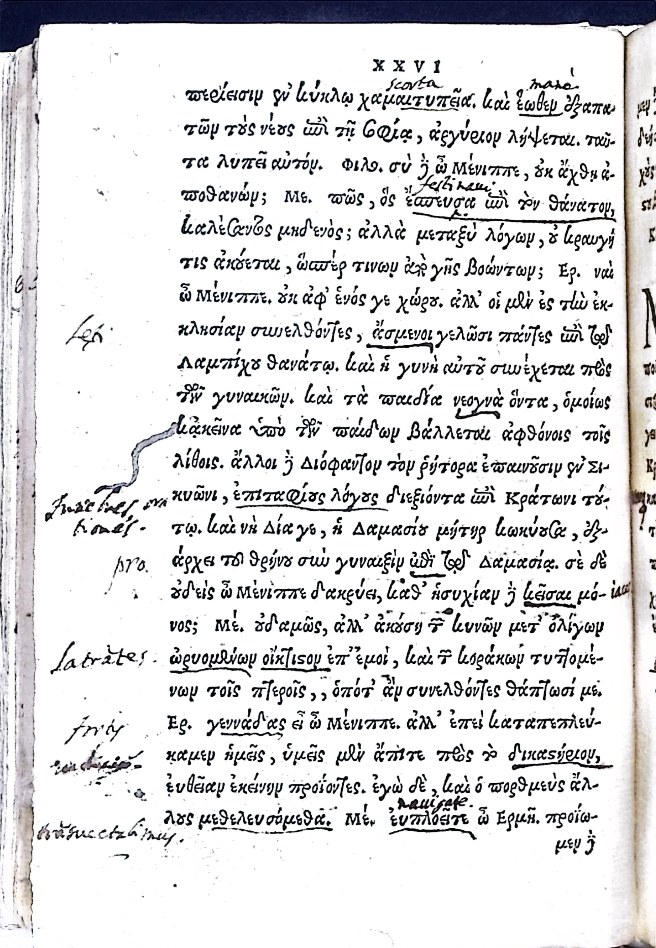 XXVI
scorta mane
περίεισιν ἐν κύκλῳ χαμαιτυπεῖα. καὶ ἕωθεν ἐξαπα-
τῶν τοὺς νέους ἐπὶ τῇ σοφίᾳ, ἀργύριον λήψεται. ταῦ-
τα λυπεῖ αὐτόν. Φιλο. σὺ δὲ ὦ Μένιππε, οὐκ ἄχθῃ ἀ-
festinaui
ποθανών; Με. πῶς, ὃς ἔσπευσα ἐπὶ τὸν θάνατον,
καλέσαντος μηδενός; ἀλλὰ μεταξὺ λόγων, οὐ κραυγή
τις ἀκούεται, ὥσπερ τινων ἀπὸ γῆς βοώντων; Ερ. ναὶ
ὦ Μένιππε. οὐκ ἀφ' ἑνός γε χώρου. ἀλλ' οἱ μὲν ἐς τὴν ἐκ-
leti κλησίαν συνελθόντες, ἄσμενοι γελῶσι πάντες ἐπὶ τῷ
Λαμπίχου θανάτῳ. καὶ ἡ γυνὴ αὐτοῦ συνέχεται πρὸς
τῶν γυναικῶν. καὶ τὰ παιδία νεογνὰ ὄντα, ὁμοίως
κἀκεῖνα ὑπὸ τῶν παίδων βάλλεται ἀφθόνοις τοῖς
λίθοις. ἄλλοι δὲ Διόφαντον τὸν ῥήτορα ἐπαινοῦσιν ἐν Σι-
funebres ora κυῶνι, ἐπιταφίους λόγους διεξιόντα ἐπὶ Κράτωνι τού-
tiones. τῳ. καὶ νὴ Δία γε, ἡ Δαμασίου μήτηρ κωκύουσα, ἐξ-
pro. άρχει τοῦ θρήνου σὺν γυναιξὶν ἐπὶ τῷ Δαμασίᾳ. σὲ δὲ
οὐδεὶς ὦ Μένιππε δακρύει, καθ' ἡσυχίαν δὲ κεῖσαι μό-
νος; Μέ. οὐδαμῶς, ἀλλ' ἀκούσῃ τῶν κυνῶν μετ' ὀλίγων
latrātes. ὠρυομένων οἴκτιστον ἐπ' ἐμοί, καὶ τῶν κοράκων τυπτομέ-
νων τοῖς πτεροῖς, , ὁπότ' ἂν συνελθόντες θάπτωσί με.
fortis Ερ. γεννάδας εἶ ὦ Μένιππε. ἀλλ' ἐπεὶ καταπεπλεύ-
καμεν ἡμεῖς, ὑμεῖς μὲν ἄπιτε πρὸς τὸ δικαστήριον,
εὐθεῖαν ἐκείνην προϊόντες. ἐγὼ δὲ, καὶ ὁ πορθμεὺς ἄλ-
nauigate.
λους μετελευσόμεθα. Μέ. εὐπλοεῖτε ὦ Ερμῆ. προΐω-
μεν δὲ